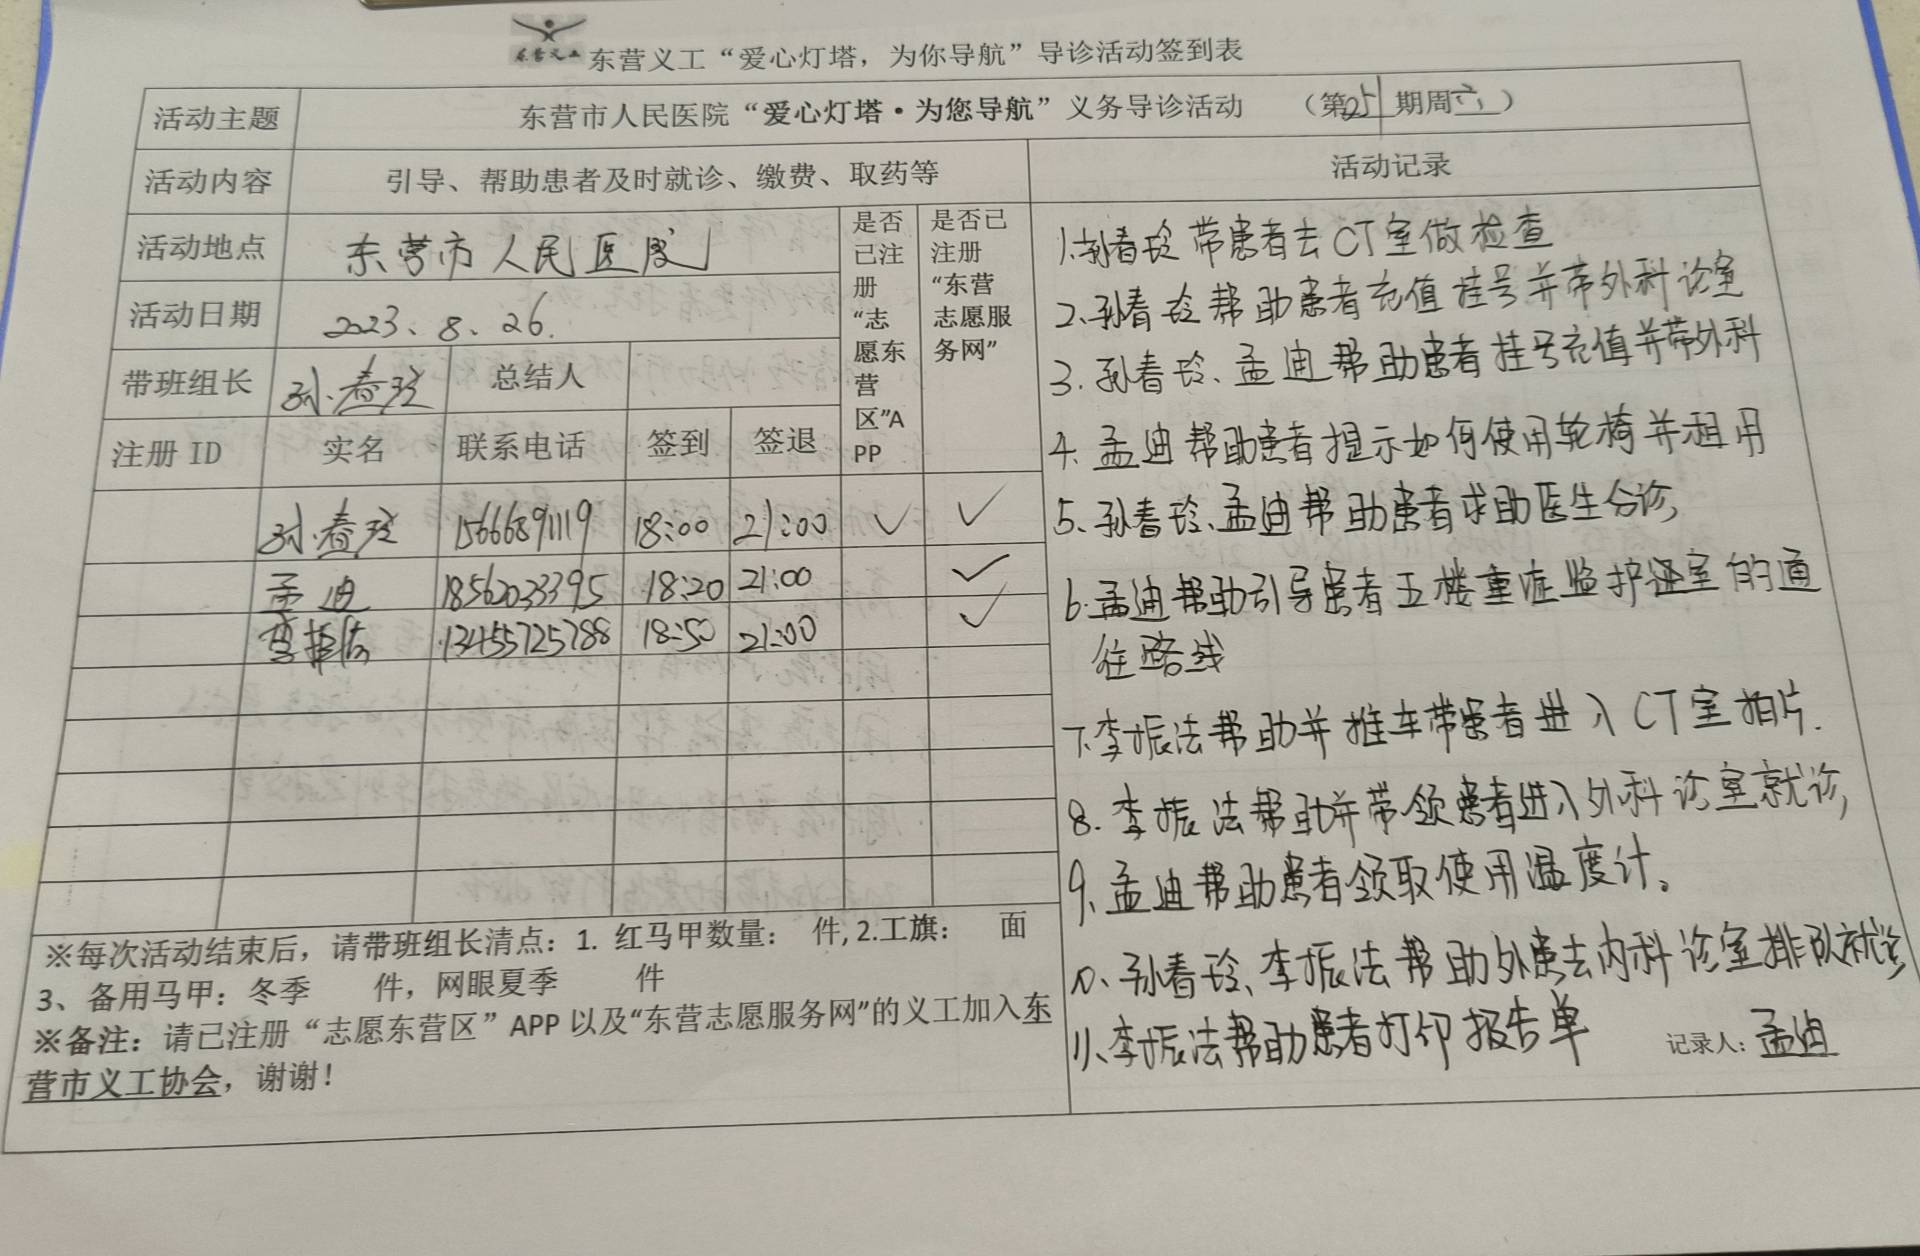 东营义工
东营义工“爱心灯塔，为你导航”导诊活动签到表
活动主题 东营市人民医院“爱心灯塔·为您导航”义务导诊活动 （第251期周六）
活动内容 引导、帮助患者及时就诊、缴费、取药等 活动记录
活动地点 东营市人民医院
活动日期 2023、8、26.
带班组长 孙春玲 总结人
是否
已注
册
“志
愿东
营
区”A
PP
是否已
注册
“东营
志愿服
务网”
注册 ID 实名 联系电话 签到 签退
孙春玲 15666891119 18:00 21:00 ✓ ✓
孟迪 18562033395 18:20 21:00 ✓
李振法 13455725788 18:50 21:00 ✓
※每次活动结束后，请带班组长清点：1. 红马甲数量： 件, 2.工旗： 面
3、备用马甲：冬季 件，网眼夏季 件
※备注：请已注册“志愿东营区”APP 以及“东营志愿服务网”的义工加入东
营市义工协会，谢谢！
1.孙春玲带患者去CT室做检查
2、孙春玲帮助患者充值挂号并带外科诊室
3. 孙春玲、孟迪帮助患者挂号充值并带外科
4. 孟迪帮助患者提示如何使用轮椅并租用
5、孙春玲、孟迪帮助患者求助医生分诊,
6.孟迪帮助引导患者五楼重症监护室的通
往路线
7.李振法帮助并推车带患者进入CT室拍片.
8. 李振法帮助并带领患者进入外科诊室就诊,
9、孟迪帮助患者领取使用温度计。
10、孙春玲、李振法帮助外患去内科诊室排队就诊
11、李振法帮助患者打印报告单
记录人：孟迪